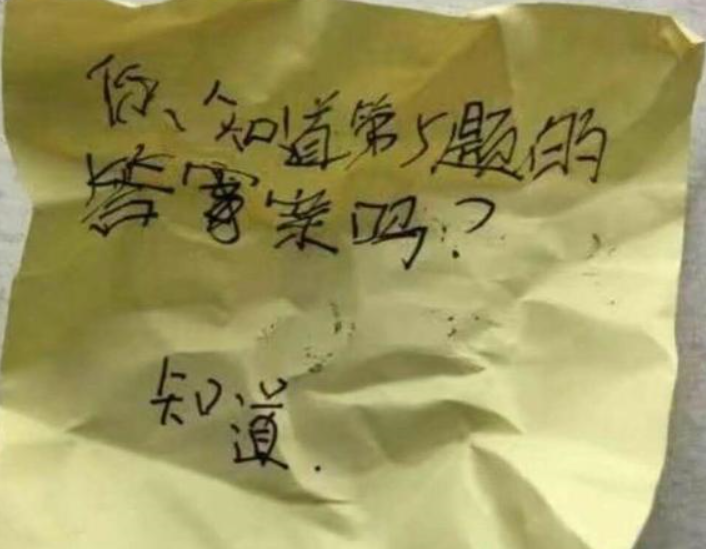 你知道第5题的
答案案吗?
知
道.